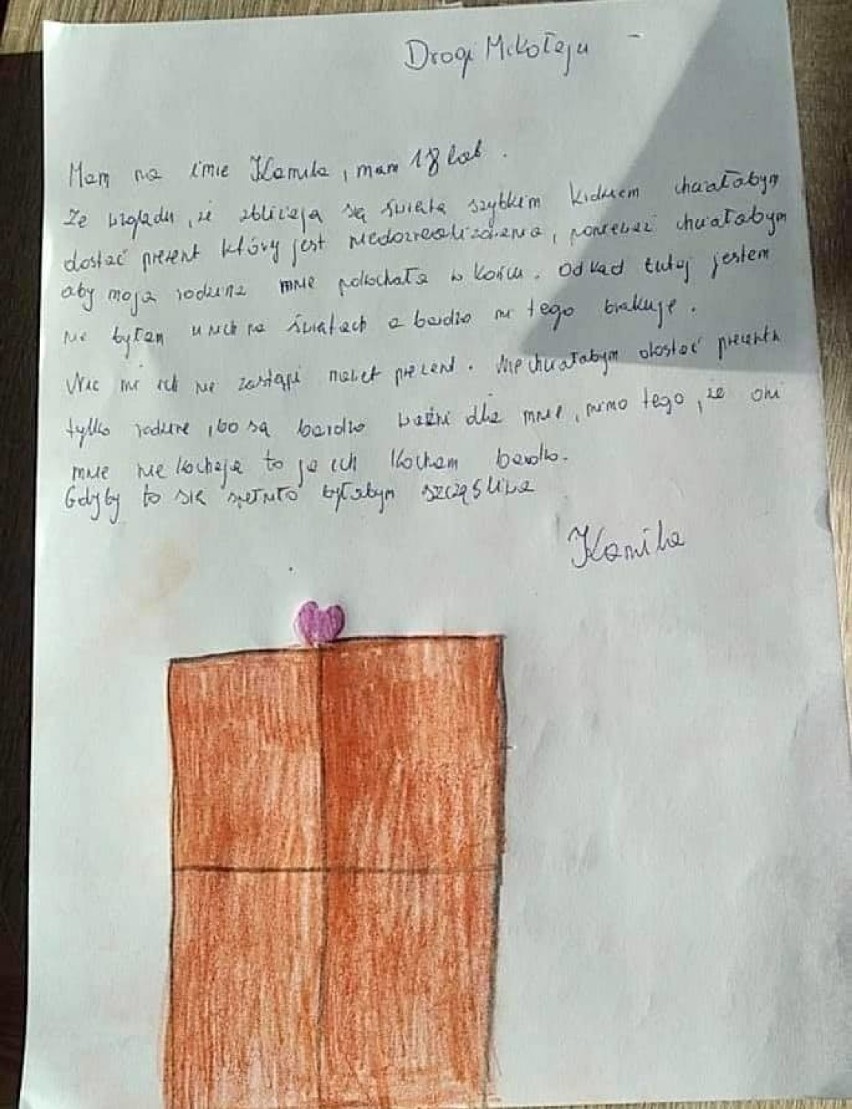 Drogi Mikołaju
Mam na imie Kamila, mam 18 lat.
Ze względu, że zbliżają się święta szybkim krokiem chciałabym
dostać prezent który jest niedozrealizowania, ponieważ chciałabym
aby moja rodzina mnie pokochała w końcu. Od kąd tutaj jestem
nie byłam u nich na świątach a bardzo mi tego brakuje.
Nic mi ich nie zastąpi nawet prezent. Nie chciałabym dostać prezentu
tylko rodzinę, bo są bardzo ważni dla mnie, mimo tego, że oni
mnie nie kochają to ja ich kocham bardzo.
Gdyby to się spełniło byłabym szczęśliwa
Kamila